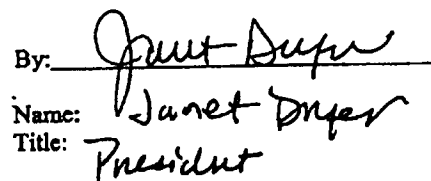 By: Janet Dryer
Name: Janet Dryer
Title: President